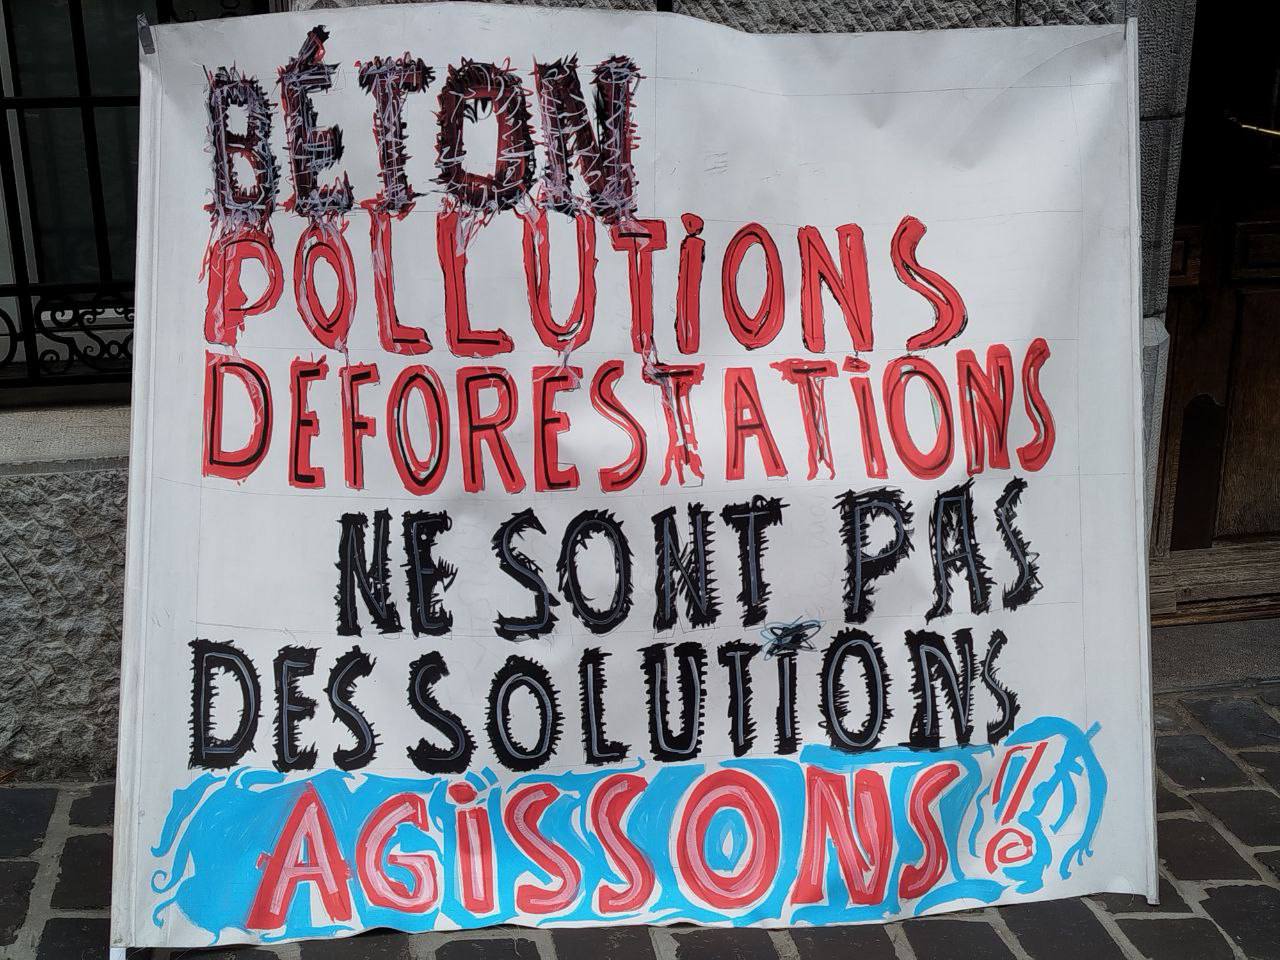 BÉTON
POLLUTiONS
DEFORESTATiONS
NE SONT PAS
DES SOLUTiONS
AGiSSONS!